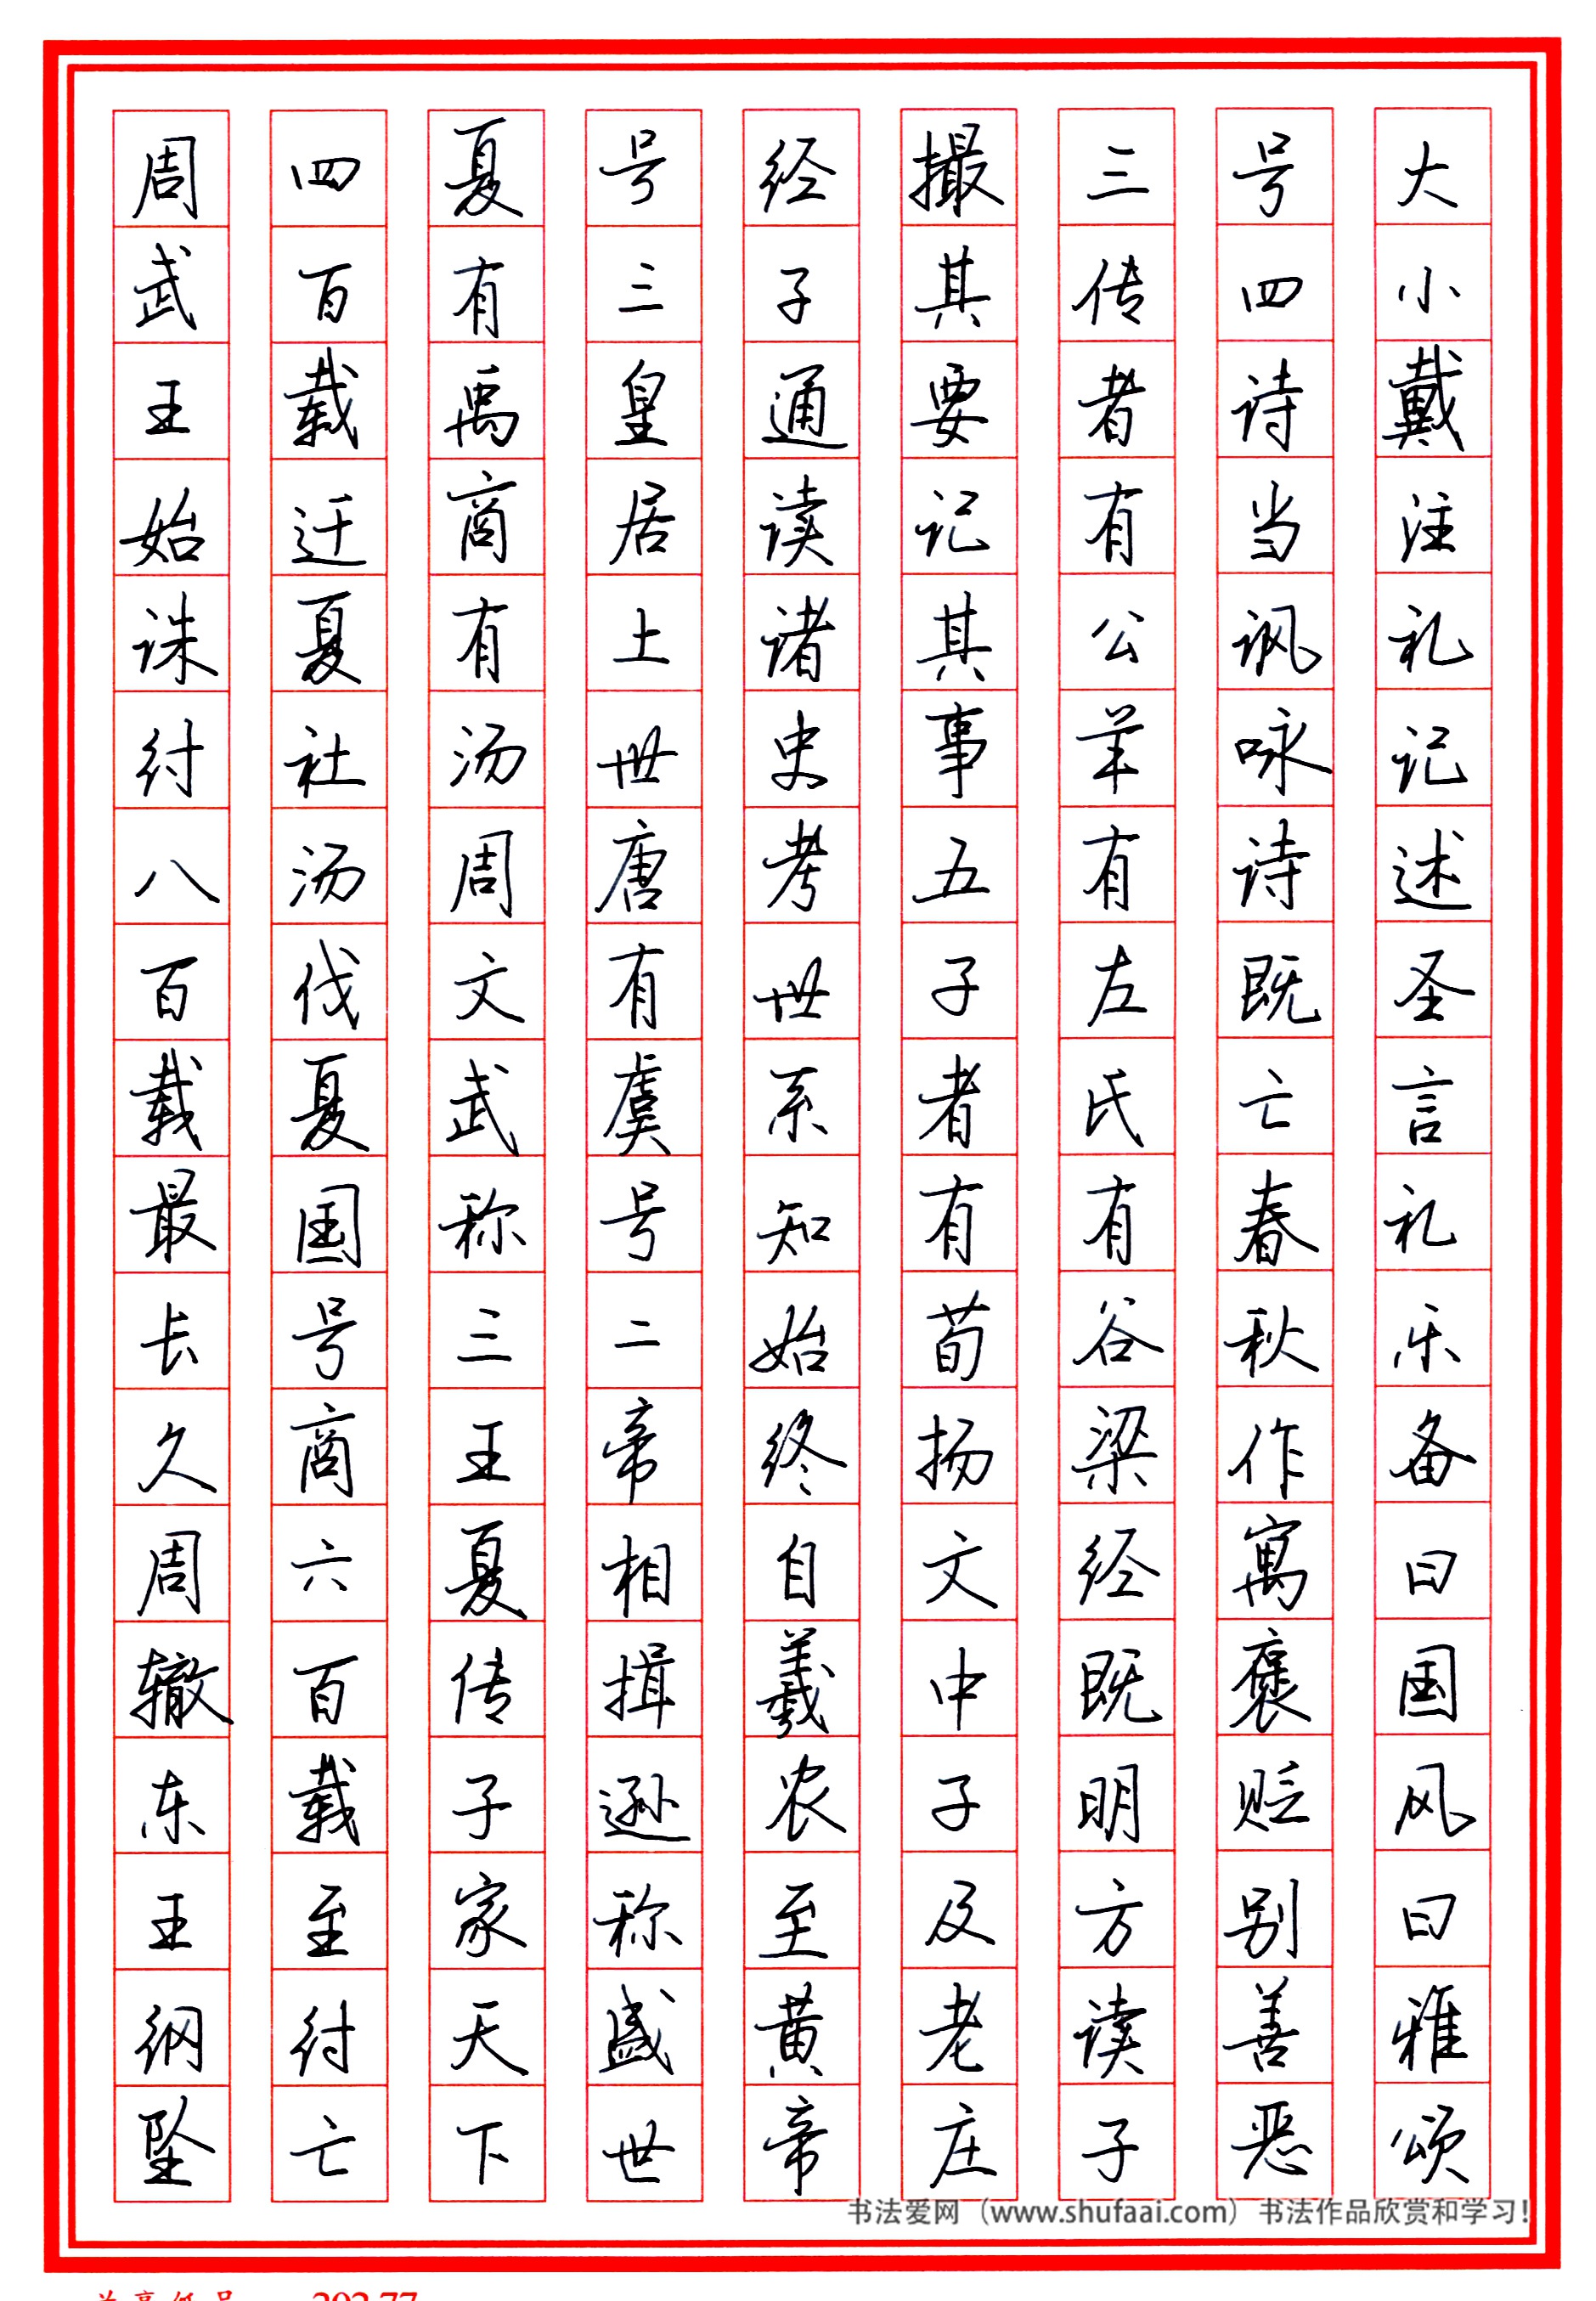 大小戴注礼记述圣言礼乐备曰国风曰雅颂
号四诗当讽咏诗既亡春秋作寓褒贬别善恶
三传者有公羊有左氏有谷梁经既明方读子
撮其要记其事五子者有荀扬文中子及老庄
经子通读诸史考世系知始终自羲农至黄帝
号三皇居土世唐有虞号二帝相揖逊称盛世
夏有禹商有汤周文武称三王夏传子家天下
四百载迁夏社汤伐夏国号商六百载至纣亡
周武王始诛纣八百载最长久周辙东王纲坠
书法爱网（www.shufaai.com）书法作品欣赏和学习！
292.77